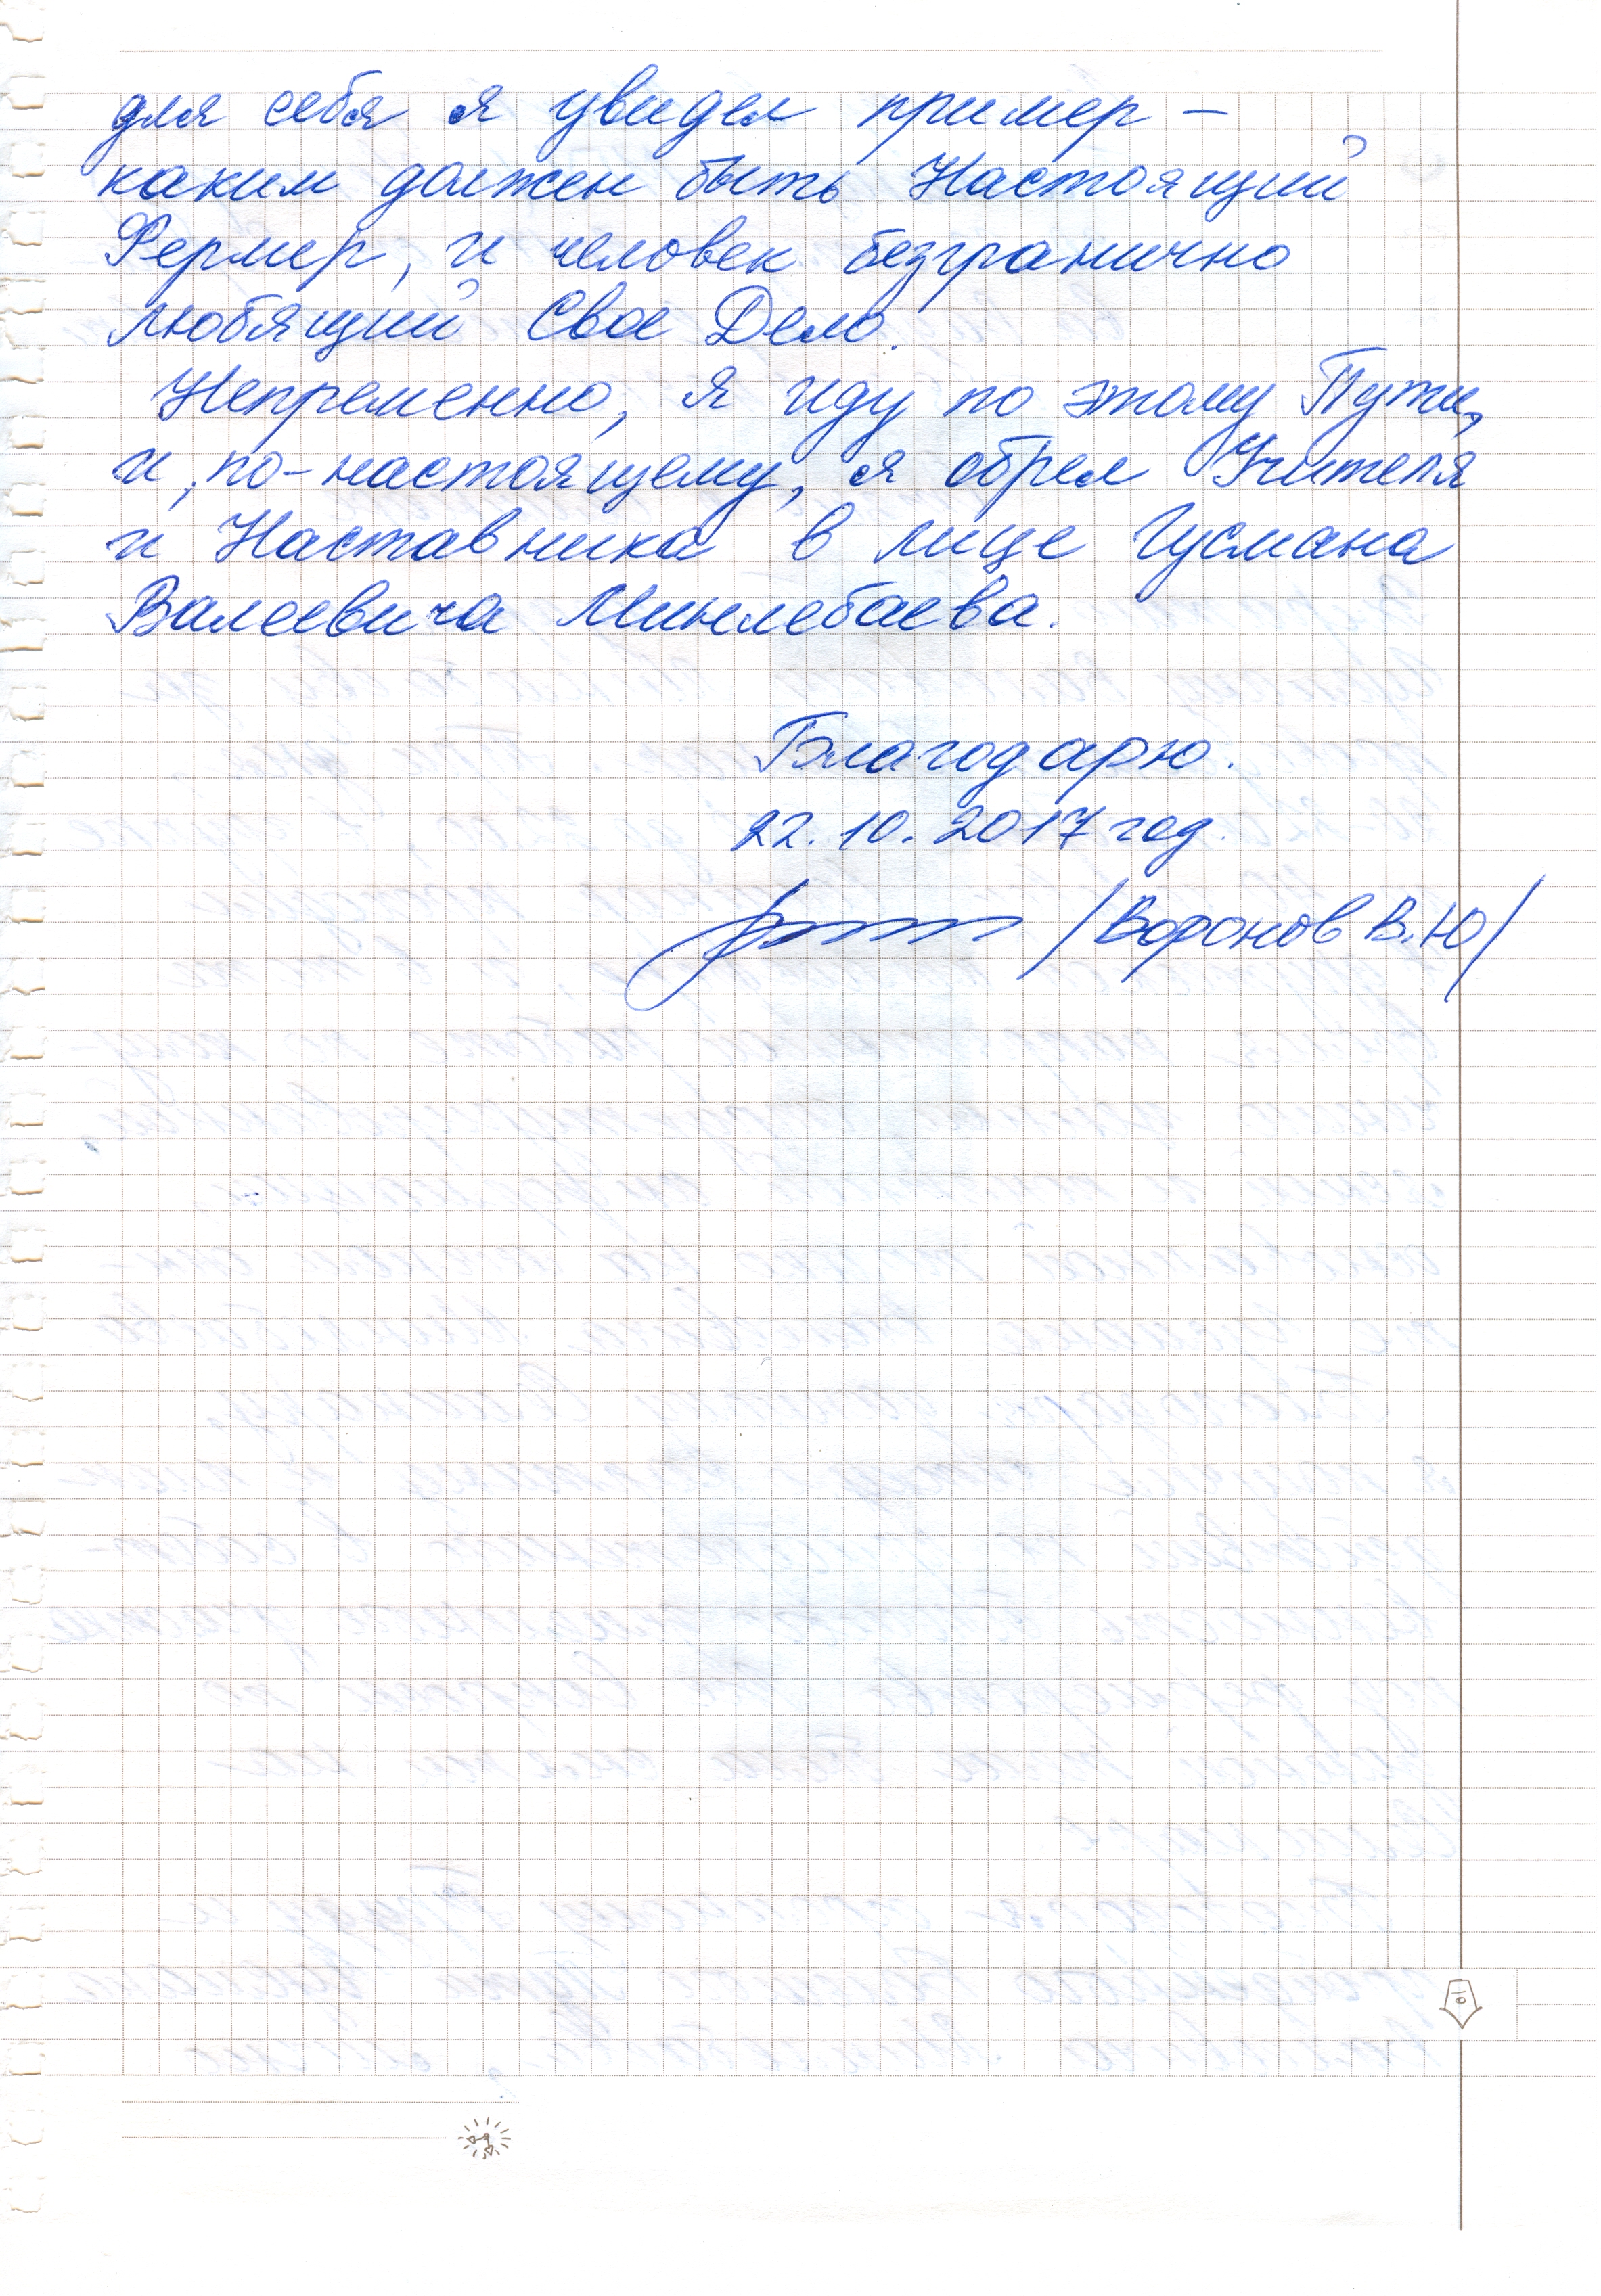 для себя я увидел пример –
каким должен быть Настоящий
Фермер, и человек безгранично
любящий Свое Дело.
Непременно, я иду по этому Пути,
и, по-настоящему, я обрел Учителя
и Наставника в лице Гусмана
Валеевича Минлебаева.
Благодарю.
22.10.2017 год.
/Воронов В.Ю/